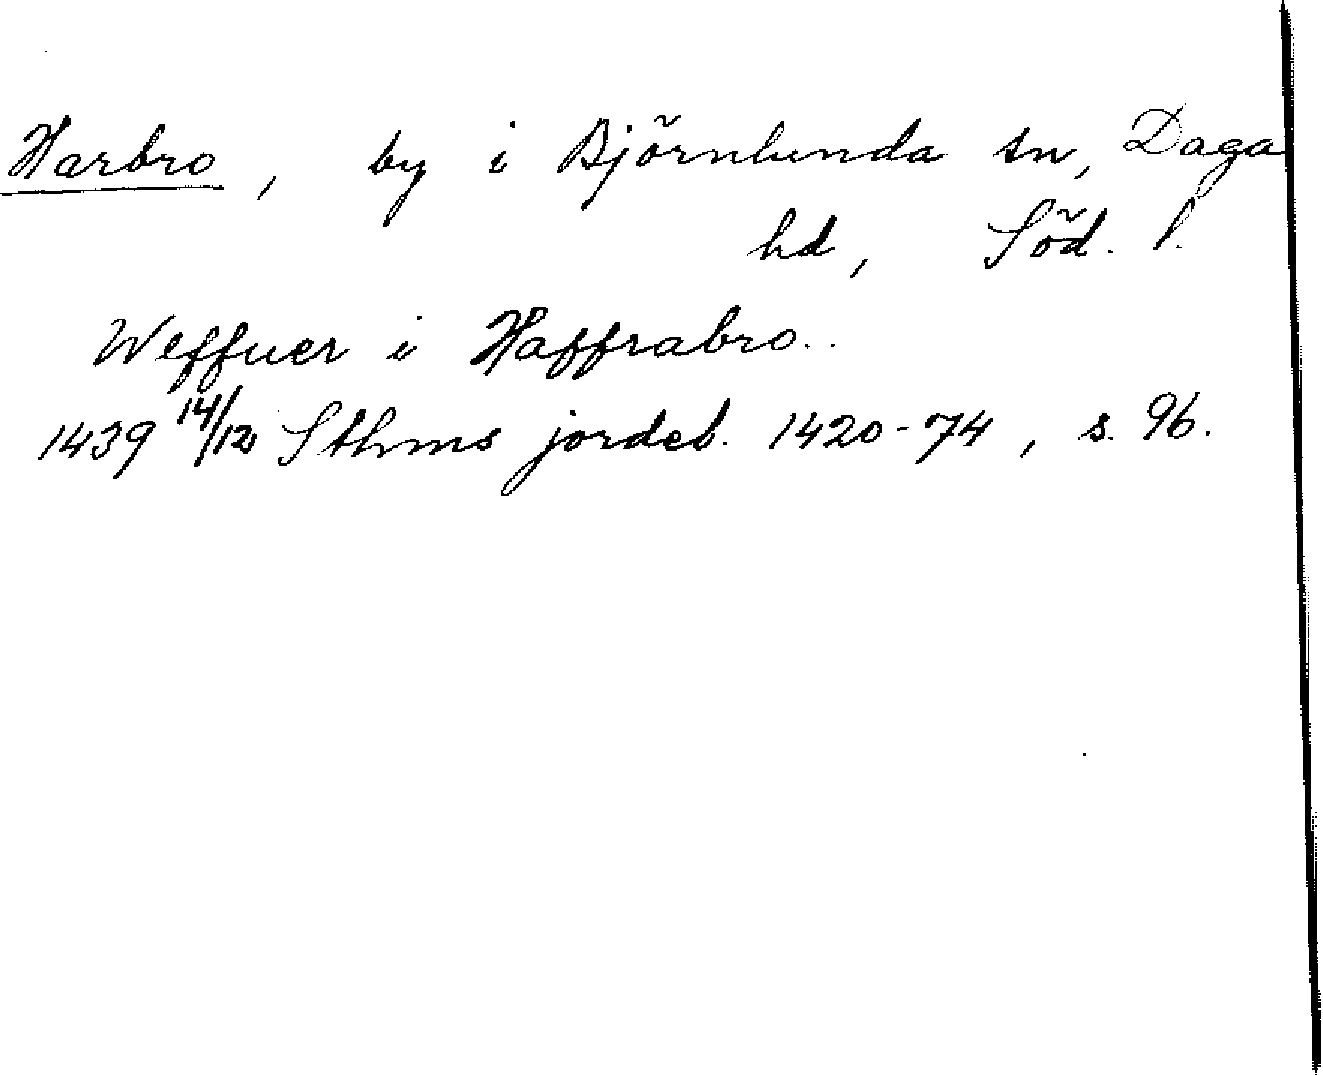 Harbro, by i Björnlunda sn, Daga
hd, Söd. l.
Weffuer i Haffrabro..
1439 14/12 Sthms jordeb. 1420-74, s. 96.